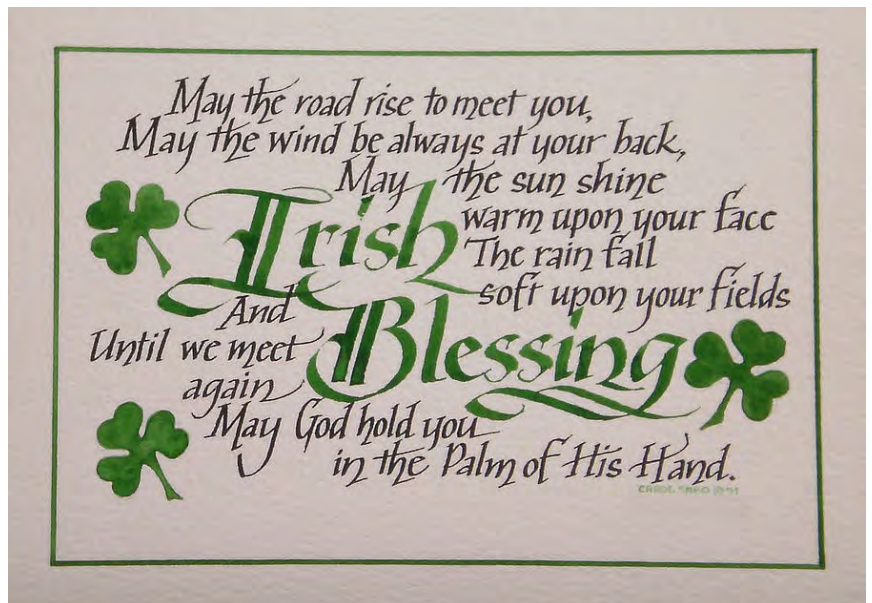 May the road rise to meet you,
May the wind be always at your back,
May the sun shine
warm upon your face
The rain fall
soft upon your fields
And
Until we meet
again
May God hold you
in the Palm of His Hand.
Irish
Blessing